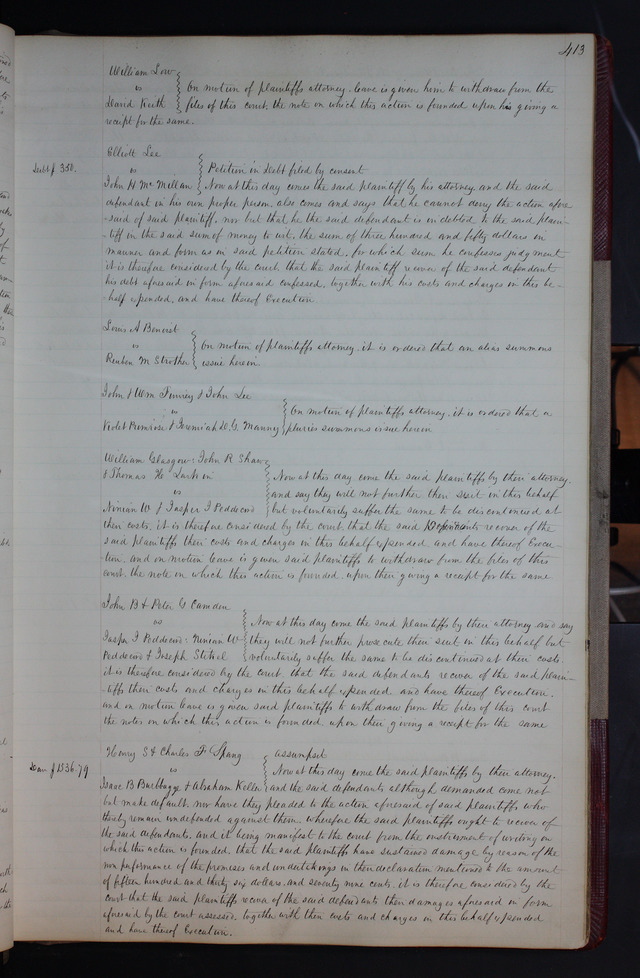 413
William Low
vs
David Keith
On motion of plaintiffs attorney. leave is given him to withdraw from the
files of this court, the note on which this action is founded upon his giving a
receipt for the same.
Elliott Lee
Debt $350. vs Petition in Debt filed by consent
John H McMillan Now at this day comes the said plaintiff by his attorney, and the said
defendant in his own proper person, also comes and says that he cannot deny the action afore
-said of said plaintiff, nor but that he the said defendant is indebted to the said plain-
-tiff in the said sum of money to wit, the sum of three hundred and fifty dollars in
manner and form as in said petition stated, for which sum he confesses judgment
it is therefore considered by the court that the said plaintiff recover of the said defendant
his debt aforesaid in form aforesaid confessed, together with his costs and charges in this be-
-half expended, and have thereof Execution
Louis A Benoist
vs On motion of plaintiffs attorney. it is ordered that an alias summons
Reuben M Strother issue herein
John & Wm Finney & John Lee
vs On motion of plaintiffs attorney. it is ordered that a
Violet Primrose & Jeremiah D. G. Manny pluries summons issue herein
William Glasgow, John R Shaw
& Thomas H Larkin Now at this day come the said plaintiffs by their attorney.
vs and say they will not further their suit in this behalf
Ninian W & Jasper J Peddecord but voluntarily suffer the same to be discontinued at
their costs. it is therefore considered by the court, that the said Defendants recover of the
said plaintiffs their costs and charges in this behalf expended and have thereof Execu-
tion and on motion leave is given said plaintiffs to withdraw from the files of this
court the note on which this action is founded upon their giving a receipt for the same
John B & Peter G Camden
vs Now at this day come the said plaintiffs by their attorney and say
Jasper J Peddecord, Ninian W they will not further prosecute their suit in this behalf but
Peddecord & Joseph voluntarily suffer the same to be discontinued at their costs.
it is therefore considered by the court that the said defendants recover of the said plain-
-tiffs their costs and charges in this behalf expended and have thereof Execution.
and on motion leave is given said plaintiffs to withdraw from the files of this court
the notes on which this action is founded upon their giving a receipt for the same
Henry S & Charles F. Spang assumpsit
Dam $1536.79 vs Now at this day come the said plaintiffs by their attorney.
Isaac B Burbbayge & Abraham Keller and the said defendants although demanded come not
but make default. nor have they pleaded to the action aforesaid of said plaintiffs who
thereby remain undefended against them. wherefore the said plaintiffs ought to recover of
the said defendants. and it being manifest to the court from the instrument of writing on
which this action is founded, that the said plaintiffs have sustained damage by reason of the
non performance of the promises and undertakings in their declaration mentioned to the amount
of fifteen hundred and thirty six dollars and seventy nine cents. it is therefore considered by the
court that the said plaintiffs recover of the said defendants their damages aforesaid in form
aforesaid by the court assessed. together with their costs and charges in this behalf expended
and have thereof Execution.